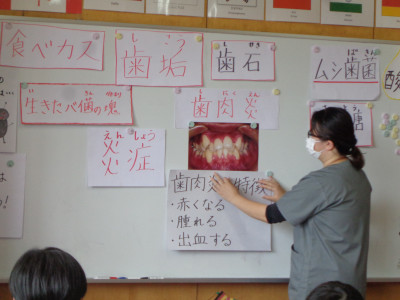 食べカス
しこう
歯垢
しせき
歯石
ムシ歯菌
生きたバイ菌の塊
しにくえん
歯肉炎
えんしょう
炎症
歯肉炎の特徴
・赤くなる
・腫れる
・出血する